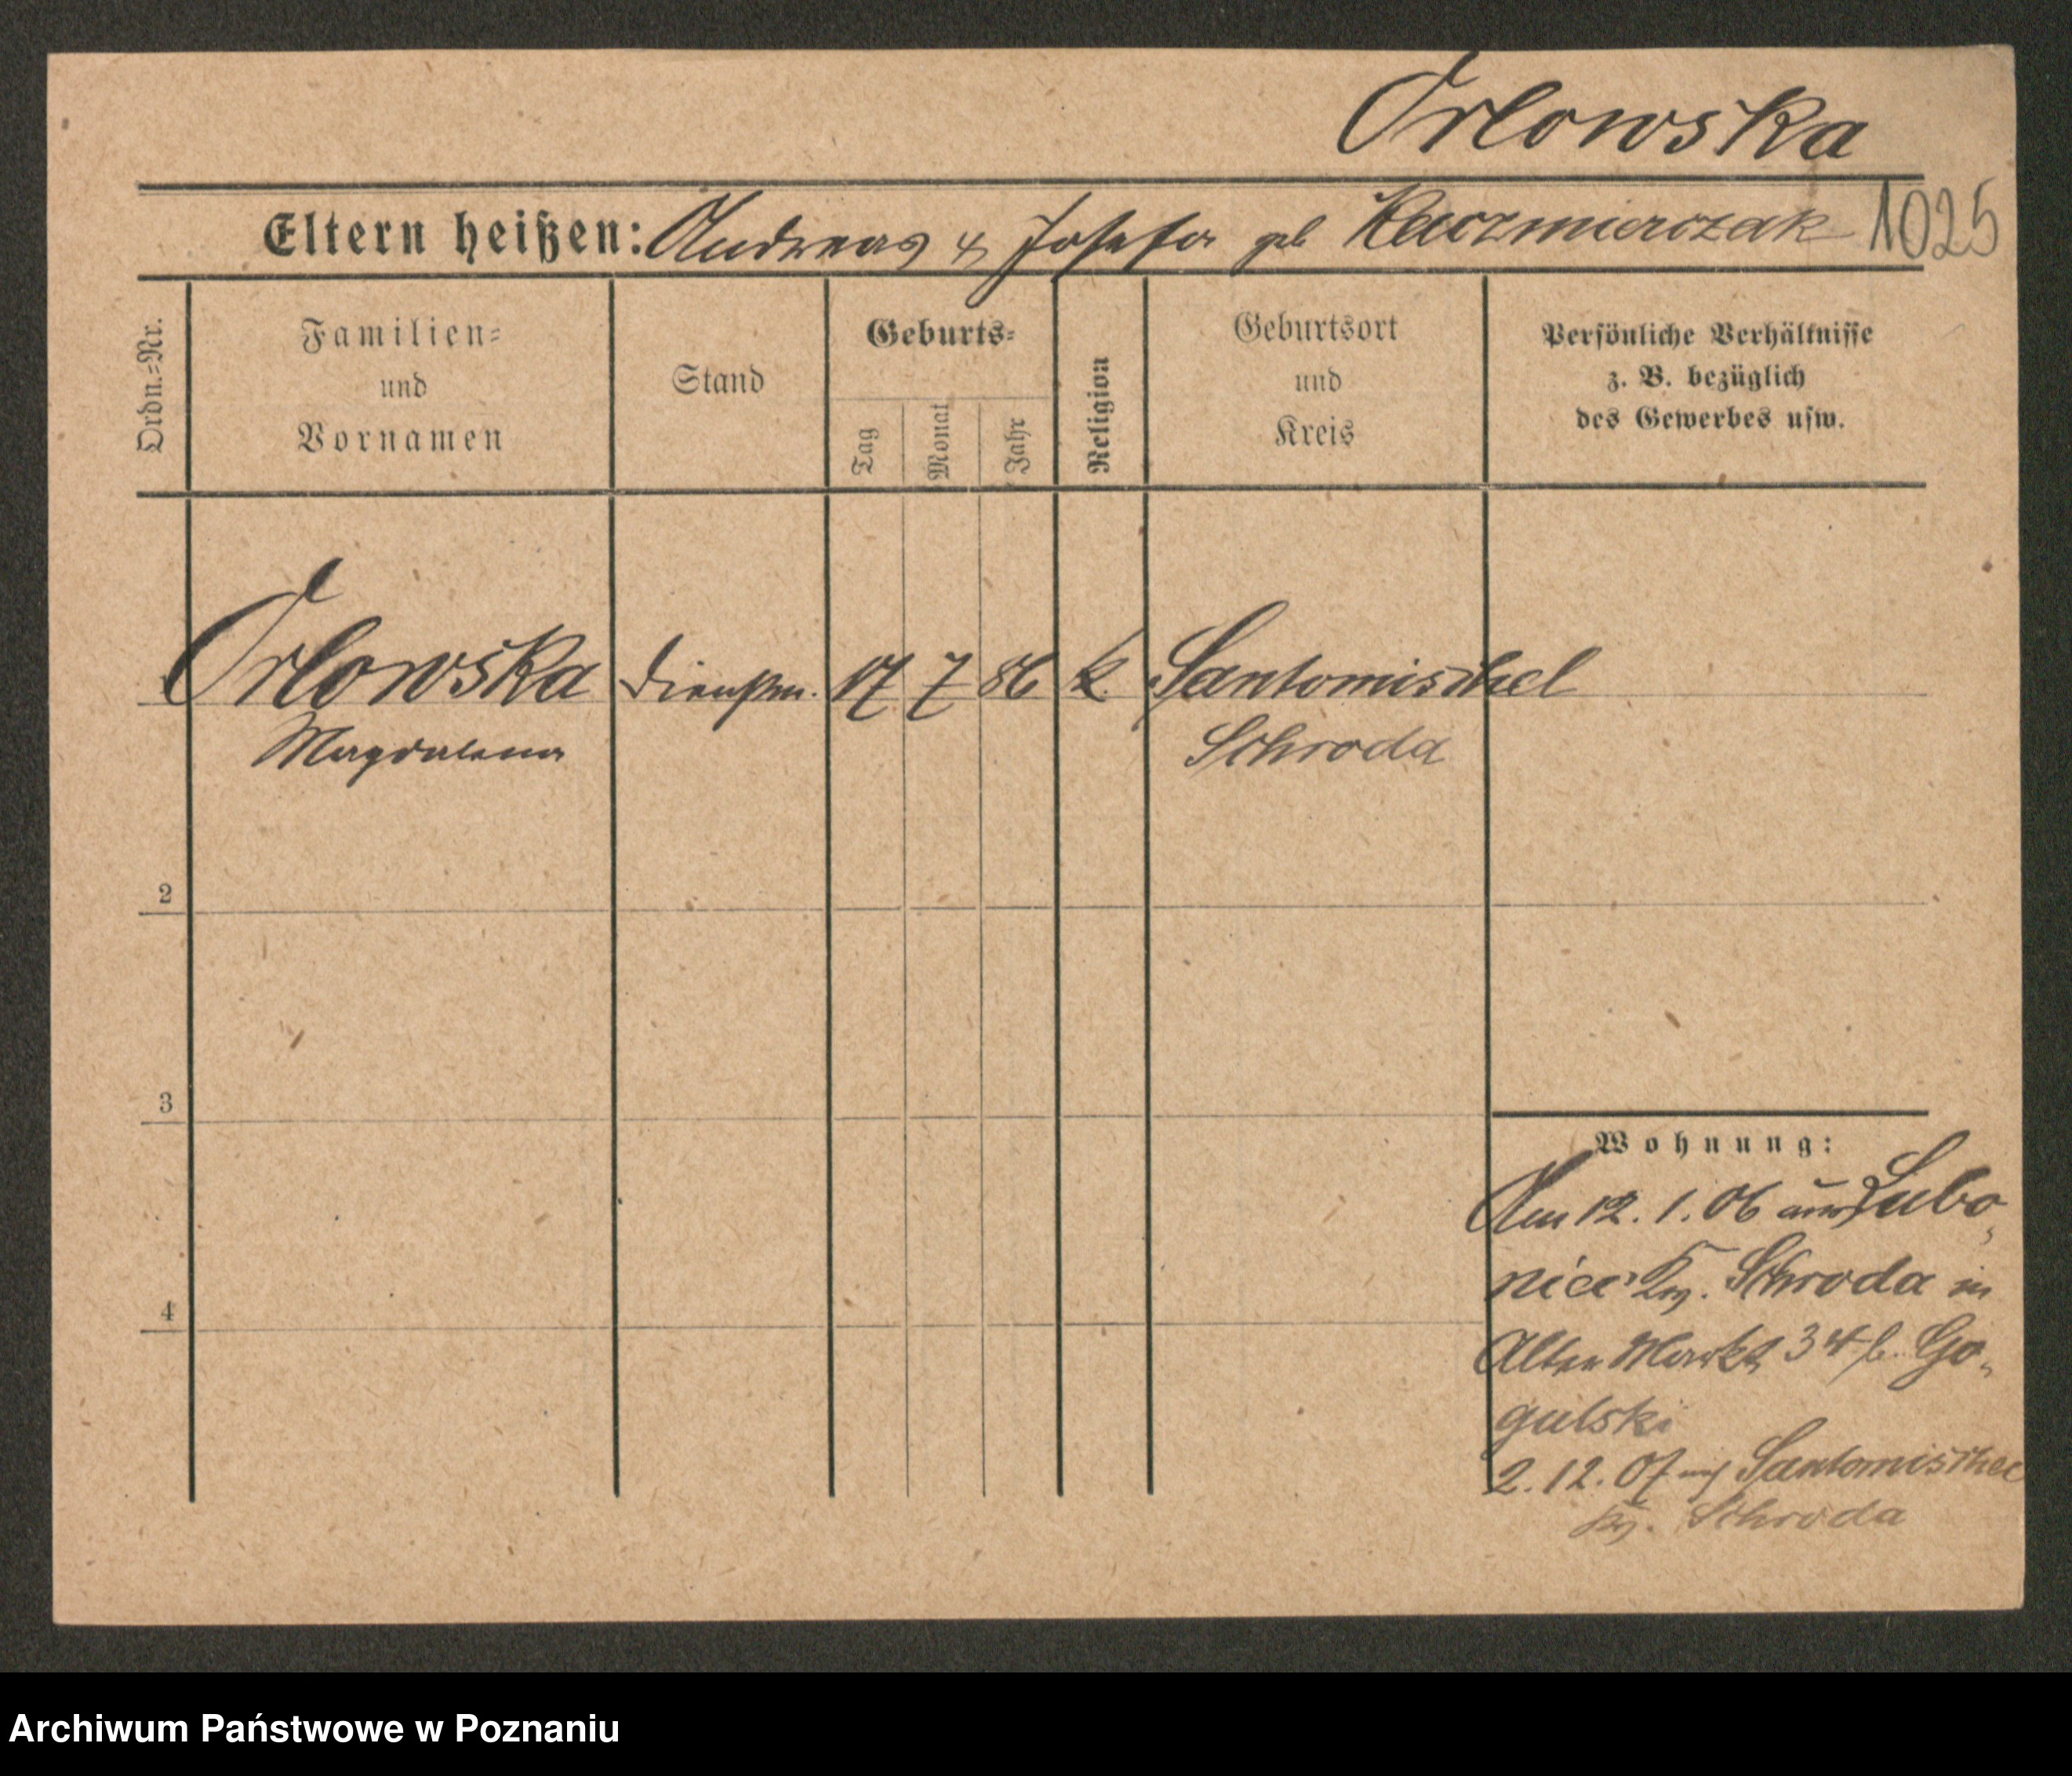 Orlowska
Eltern heißen: Andreas & Josefa geb Kaczmierczak 1025
Ordn.=Nr.
Familien=
und
Vornamen
Stand
Geburts=
Tag
Monat
Jahr
Religion
Geburtsort
und
Kreis
Persönliche Verhältnisse
z. B. bezüglich
des Gewerbes usw.
Orlowska Dienstm. 17 7 86 k. Santomischel
Magdalena Schroda
2
3
4
Wohnung:
Am 12. 1. 06 aus Lubo-
nice Krs. Schroda in
Alter Markt 34 b. Go-
gulski
2. 12. 07 nach Santomischel
Krs. Schroda
Archiwum Państwowe w Poznaniu